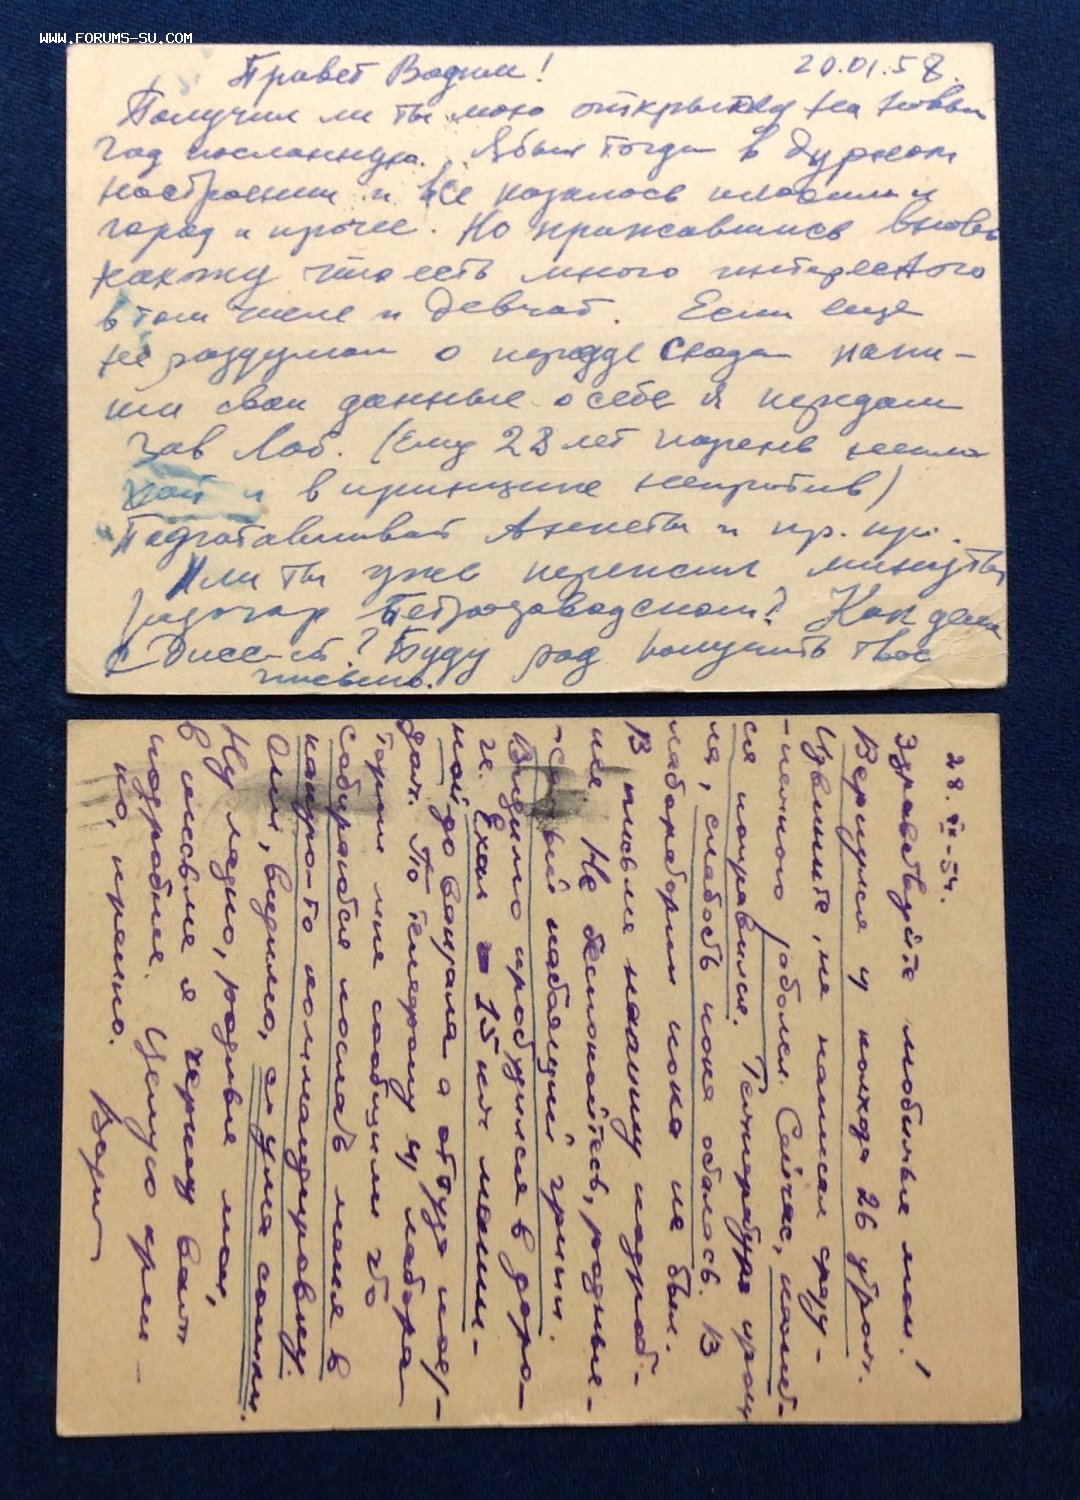 WWW.FORUMS-SU.COM
Привет Вадим! 20.01.58.
Получил ли ты мою открытку на новый
год посланную. Я был тогда в дурном
настроении и все казалось плохим и
город и прочее. Но прижившись вновь
нахожу что есть много интересного
в том числе и девчат. Если еще
не раздумал о переезде сюда напи-
ши свои данные о себе я передам
зав Лаб. (Ему 28 лет парень непло
хой и в принципе непротив)
Подготавливай Анкеты и пр. пр.
Или ты уже пережил минуты
разочар Петрозаводском? Как дела
с Дисс-ей? Буду рад получить твое
письмо.
28.XI-54.
Здравствуйте любимые мои!
Вернулся я когда 26 утром.
Извините, не написал сразу -
- немного заболел. Сейчас, конеч-
ся поправился. Температура уром
ла, слабость пока осталась. В
лаборатории пока не был.
В письме напишу подроб-
нее. Не беспокойтесь, родные -
- самый настоящий грипп.
Видимо простудился в доро-
ге. Ехал 15 км маши-
ной до вокзала а оттуда поез-
дом. По телефону из лабора
тории мне сообщили что
собираются послать меня в
какую-то командировку.
Они, видимо, с ума сошли.
Ну ладно, родные мои,
в письме я черкну вам
подробнее. Целую креп -
ко, крепко.
Вадим